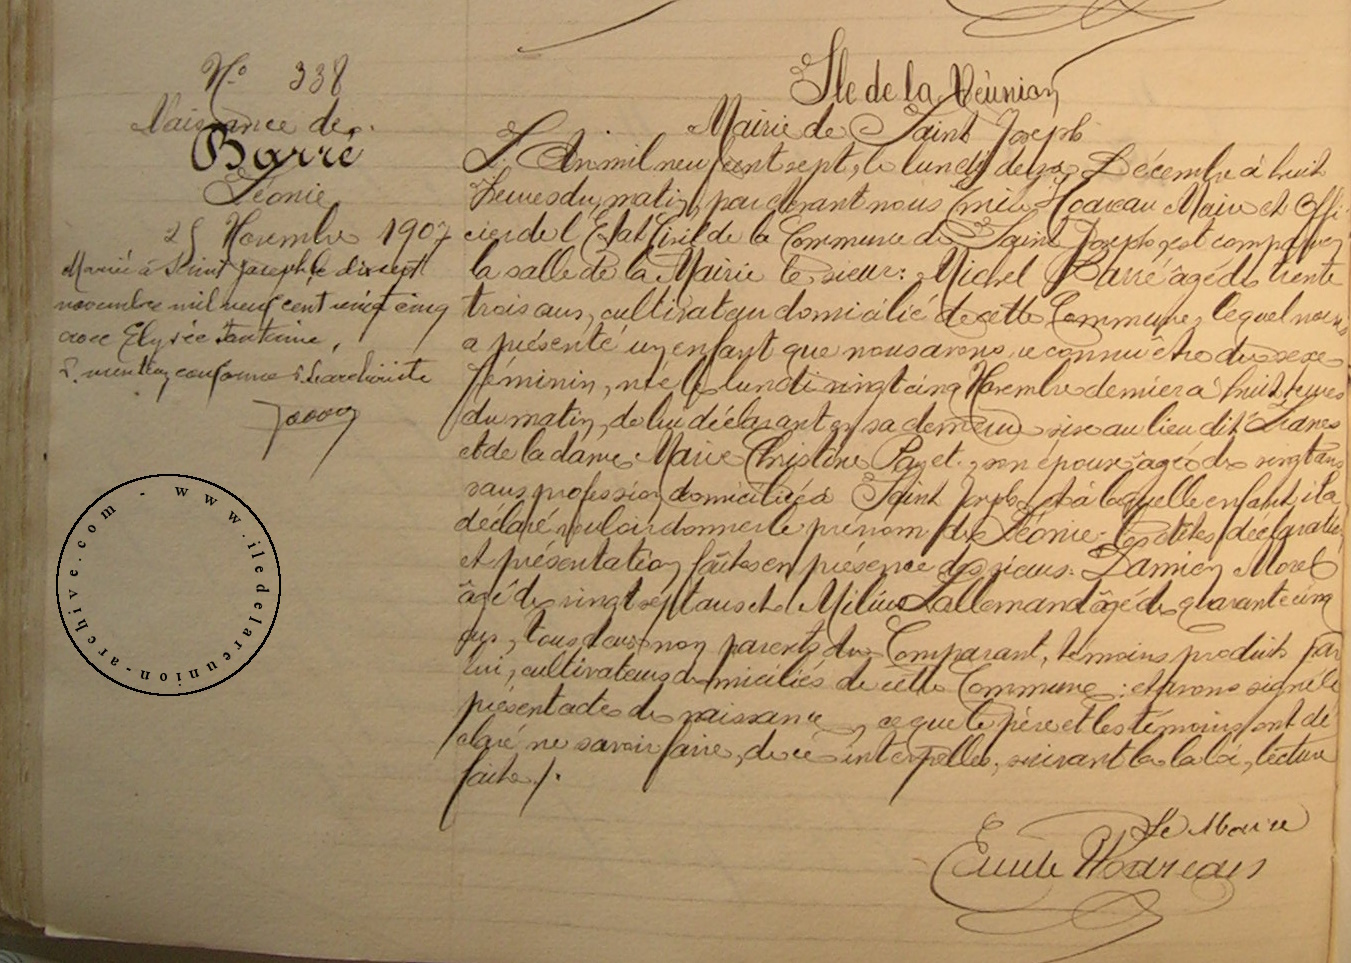 N.º 338
Naissance de
Barré
Léonie
25 Novembre 1907
Marié à Saint Joseph le dix sept
novembre mil neuf cent vingt cinq
avec Elysée Fontaine,
P. mention conforme L'archiviste
Ile de la Réunion
Mairie de Saint Joseph
L'An mil neuf cent sept, le lundi deux Décembre à huit
heures du matin, par devant nous Emile Hoareau Maire et Offi-
cier de l'Etat Civil de la Commune de Saint Joseph, est comparu en
la salle de la Mairie le sieur: Michel Barré âgé de trente
trois ans, cultivateur domicilié de cette Commune, lequel nous
a présenté un enfant que nous avons reconnu être du sexe
féminin, né le lundi vingt cinq Novembre dernier à huit heures
du matin, de lui déclarant en sa demeure sise au lieu dit Lianes
et de la dame Marie Christine Payet, son épouse âgée de vingt ans
sans profession domiciliée à Saint Joseph, et à laquelle enfant il a
déclaré vouloir donner le prénom de Léonie. Lesdites déclaration
et présentation faites en présence des sieurs. Damien Morel
âgé de vingt sept ans et Milius Lallemand âgé de quarante cinq
ans, tous deux non parents du Comparant, témoins produits par
lui, cultivateurs domiciliés de cette Commune; et avons signé le
présent acte de naissance, ce que le père et les témoins ont dé-
claré ne savoir faire, de ce interpellés, suivant la loi, lecture
faite /.
Le Maire
Emile Hoareau
www.iledelareunion-archive.com -